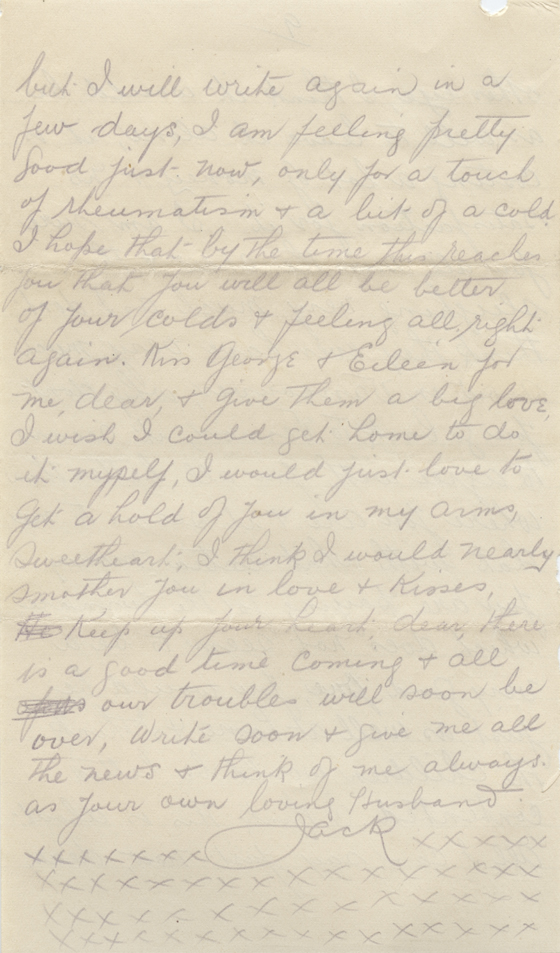 but I will write again in a
few days, I am feeling pretty
good just now, only for a touch
of rheumatism + a bit of a cold
I hope that by the time this reaches
you that you will all be better
of your colds + feeling all right
again. Kiss George + Eileen for
me, dear, + give them a big love,
I wish I could get home to do
it myself, I would just love to
get a hold of you in my arms,
sweetheart, I think I would nearly
smother you in love + kisses,
Keep up your heart, dear, there
is a good time coming + all
our troubles will soon be
over, write soon + give me all
the news + think of me always.
as your own loving Husband
Jack
x x x x x x x x x x x x
x x x x x x x x x x x x x x
x x x x x x x x x x x x x
x x x x x x x x x x x x x x